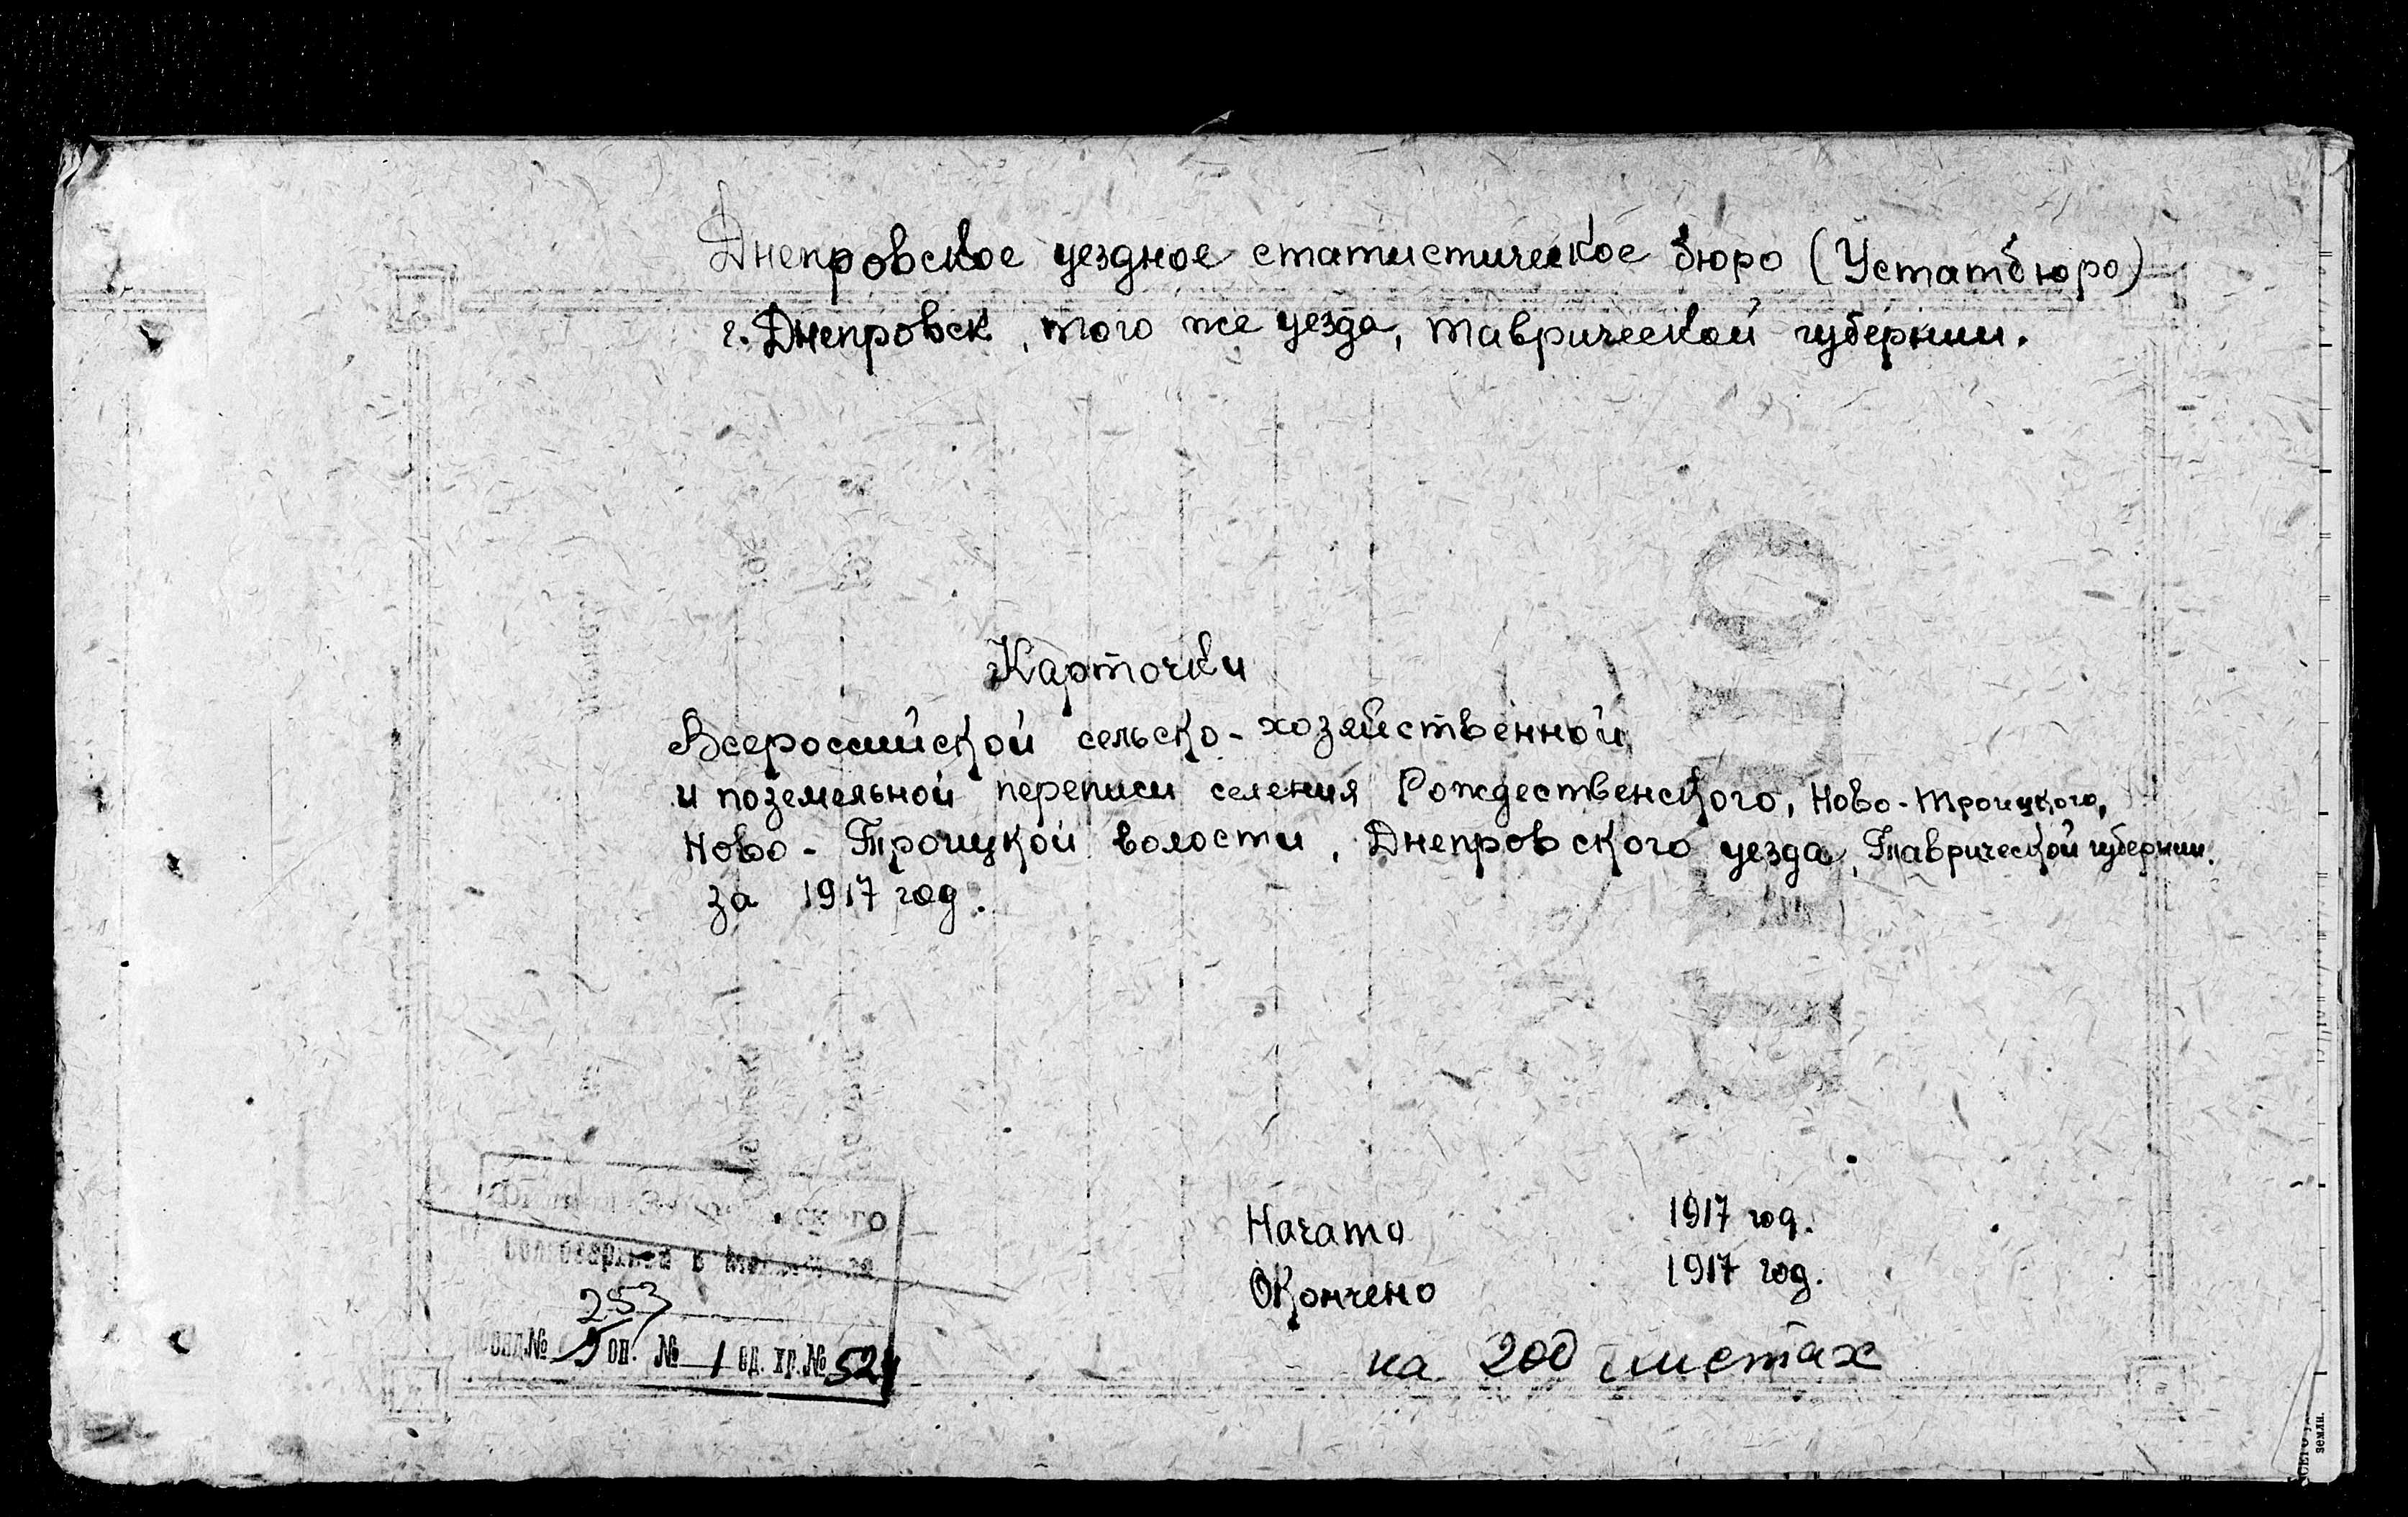 Днепровское уездное статистическое бюро (Устатбюро)
г. Днепровск, того же уезда, Таврической губернии.
Карточки
Всероссийской сельско-хозяйственной
и поземельной переписи селения Рождественского, Ново-Троицкого,
Ново-Троицкой волости, Днепровского уезда, Таврической губернии.
за 1917 год.
Начато 1917 год.
Окончено 1917 год.
на 200 листах
253
№ 5 оп. № 1 ед. хр. № 524
ДЕЛО
земли.